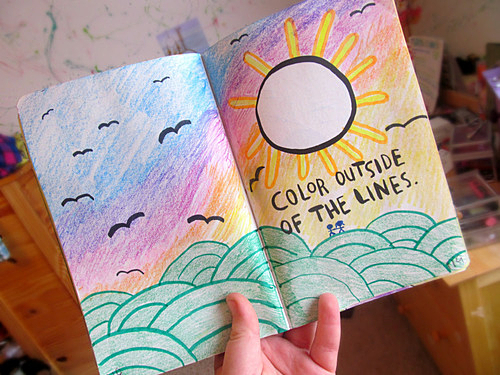 COLOR OUTSIDE
OF THE LINES.